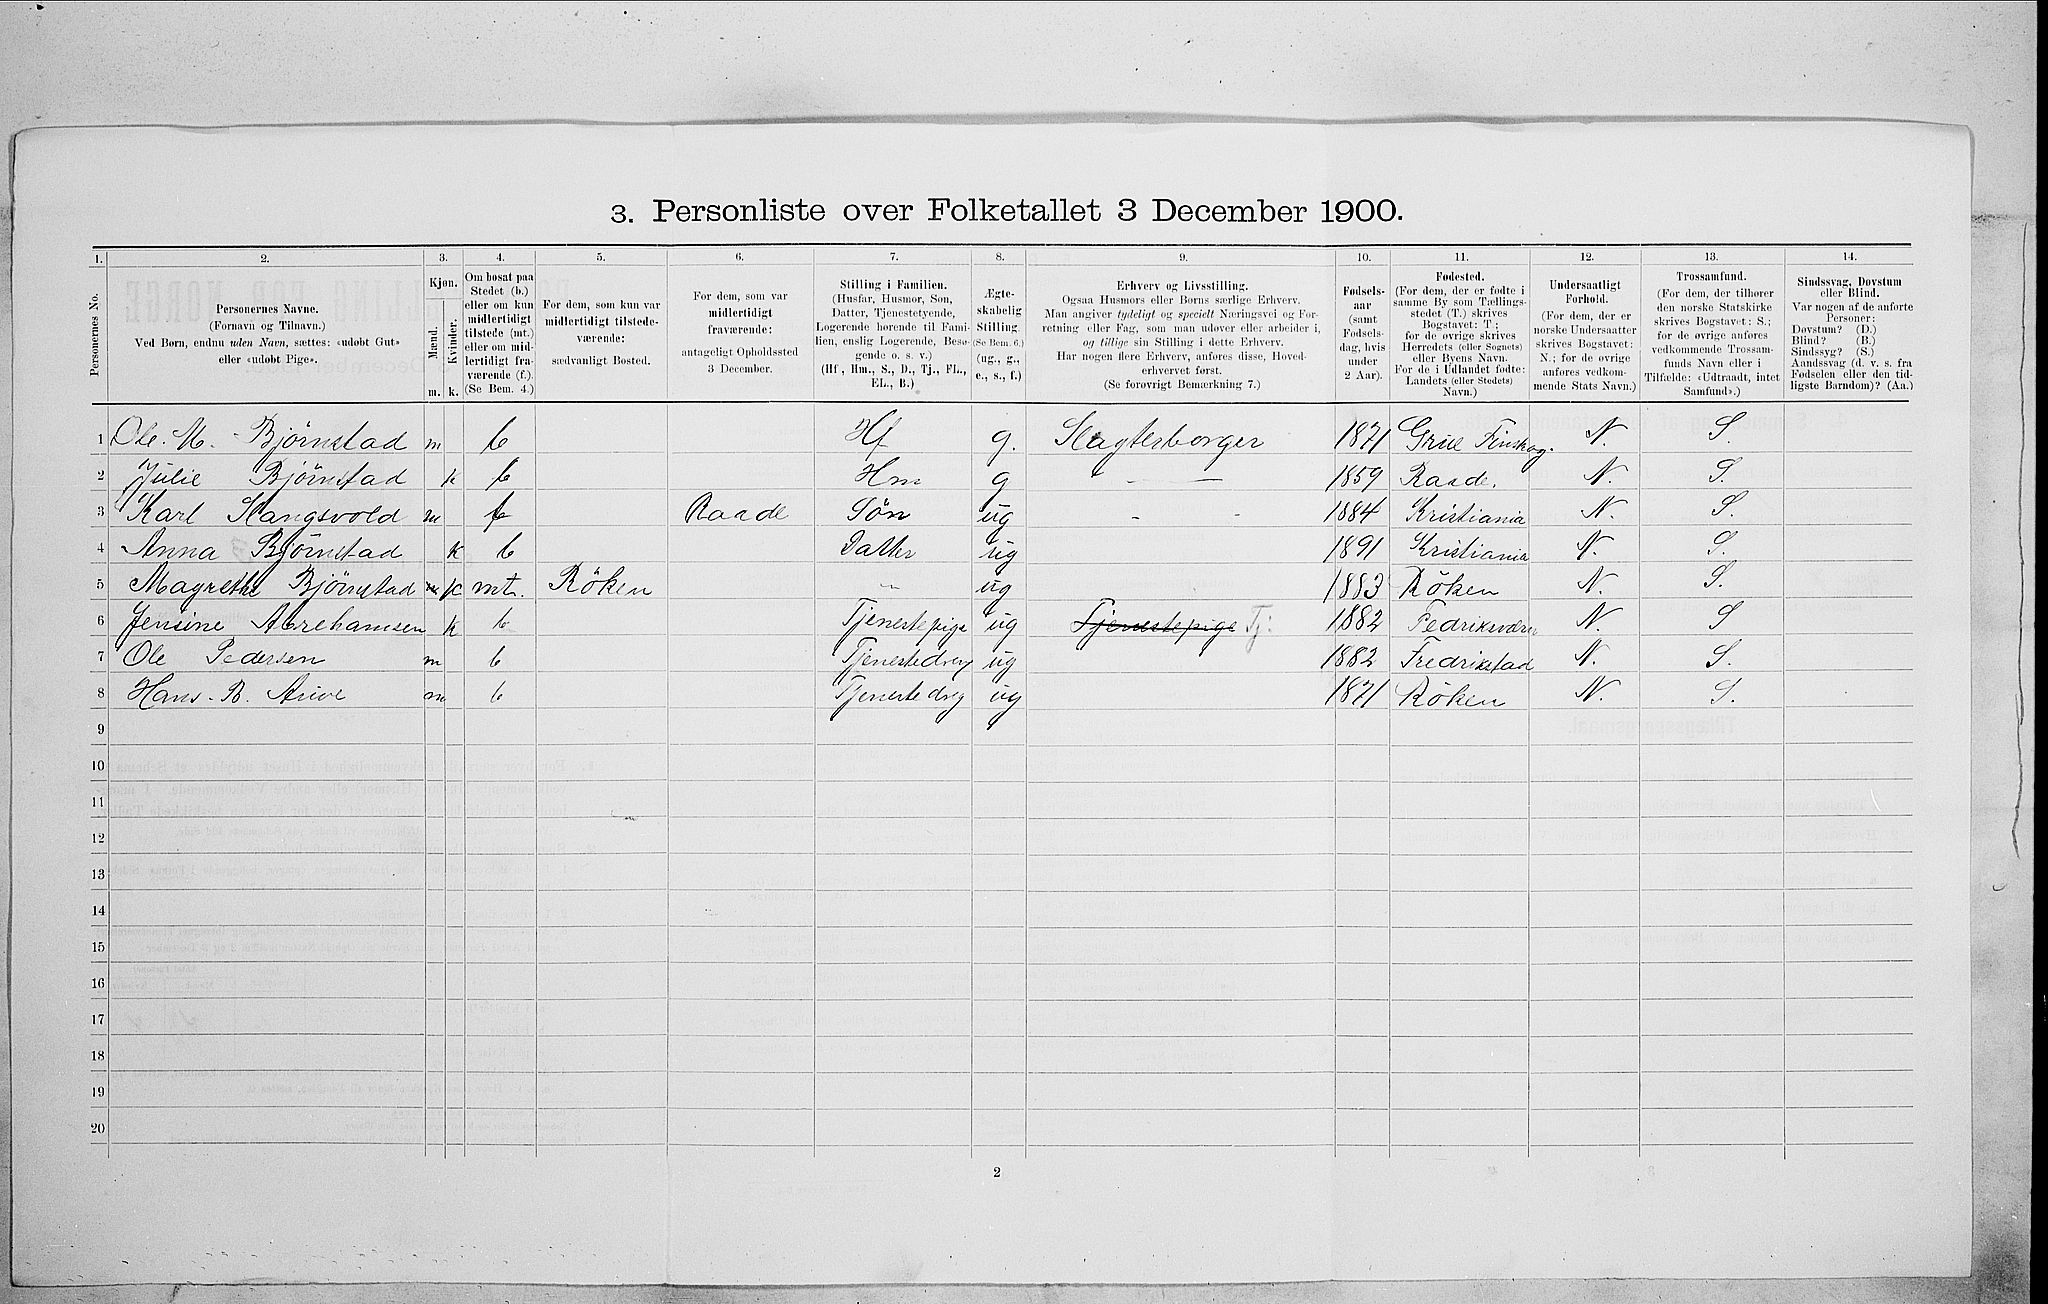 3. Personliste over Folketallet 3 December 1900.
1. 2. 3. 4. 5. 6. 7. 8. 9. 10. 11. 12. 13. 14.
Personernes No.
Personernes Navne.
(Fornavn og Tilnavn.)
Ved Børn, endnu uden Navn, sættes: «udøbt Gut»
eller «udøbt Pige».
Kjøn.
Mænd.
Kvinder.
m. k.
Om bosat paa
Stedet (b.)
eller om kun
midlertidigt
tilstede (mt.)
eller om mid-
lertidigt fra-
værende (f.)
(Se Bem. 4.)
For dem, som kun var
midlertidigt tilstede-
værende:
sædvanligt Bosted.
For dem, som var
midlertidigt
fraværende:
antageligt Opholdssted
3 December.
Stilling i Familien.
(Husfar, Husmor, Søn,
Datter, Tjenestetyende,
Logerende hørende til Fami-
lien, enslig Logerende, Besø-
gende o. s. v.)
(Hf., Hm., S., D., Tj., FL.,
EL., B.)
Ægte-
skabelig
Stilling.
(Se Bem. 6.)
(ug., g.,
e., s., f.)
Erhverv og Livsstilling.
Ogsaa Husmors eller Børns særlige Erhverv.
Man angiver tydeligt og specielt Næringsvei og For-
retning eller Fag, som man udøver eller arbeider i,
og tillige sin Stilling i dette Erhverv.
Har nogen flere Erhverv, anføres disse, Hoved-
erhvervet først.
(Se forøvrigt Bemærkning 7.)
Fødsels-
aar
(samt
Fødsels-
dag, hvis
under
2 Aar).
Fødested.
(For dem, der er fødte i
samme By som Tællings-
stedet (T.) skrives
Bogstavet: T.;
for de øvrige skrives
Herredets (eller Sognets)
eller Byens Navn.
For de i Udlandet fødte:
Landets (eller Stedets)
Navn.)
Undersaatligt
Forhold.
(For dem, der er
norske Undersaatter
skrives Bogstavet:
N.; for de øvrige
anføres vedkom-
mende Stats Navn.)
Trossamfund.
(For dem, der tilhører
den norske Statskirke
skrives Bogstavet: S.;
for de øvrige anføres
vedkommende Trossam-
funds Navn eller i
Tilfælde: «Udtraadt, intet
Samfund».)
Sindssvag, Døvstum
eller Blind.
Var nogen af de anførte
Personer:
Døvstum? (D.)
Blind? (B.)
Sindssyg? (S.)
Aandssvag (d. v. s. fra
Fødselen eller den tid-
ligste Barndom)? (Aa.)
1 Ole. M. Bjørnstad m b Hf g. Slagtesborger 1871 Grue Finskog. N. S.
2 Julie Bjørnstad k b Hm g - — 1859 Raade. N. S.
3 Karl Slangsvold m f Raade Søn ug - - 1884 Kristiania N. S.
4 Anna Bjørnstad k b Datter ug 1891 Kristiania N. S.
5 Magrethe Bjørnstad k mt. Röken — ug 1883 Röken N. S.
6 Jensine Abrehamsen k b Tjenestepige ug Tjenestepige Tj. 1882 Fedriksværn N. S
7 Ole Pedersen m b Tjenestedreng ug 1882 Fredrikstad N. S.
8 Hans. B. Arive m b Tjenestedreg ug 1871 Röken N. S.
9
10
11
12
13
14
15
16
17
18
19
20
2